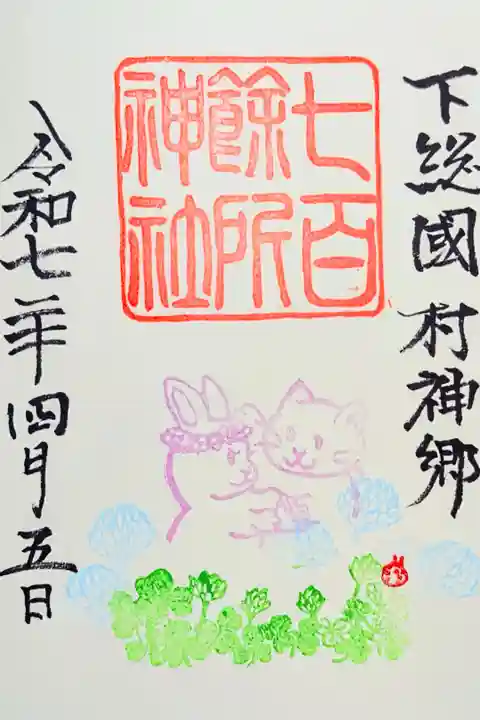 下総國村神郷
七百餘所神社
令和七年四月五日